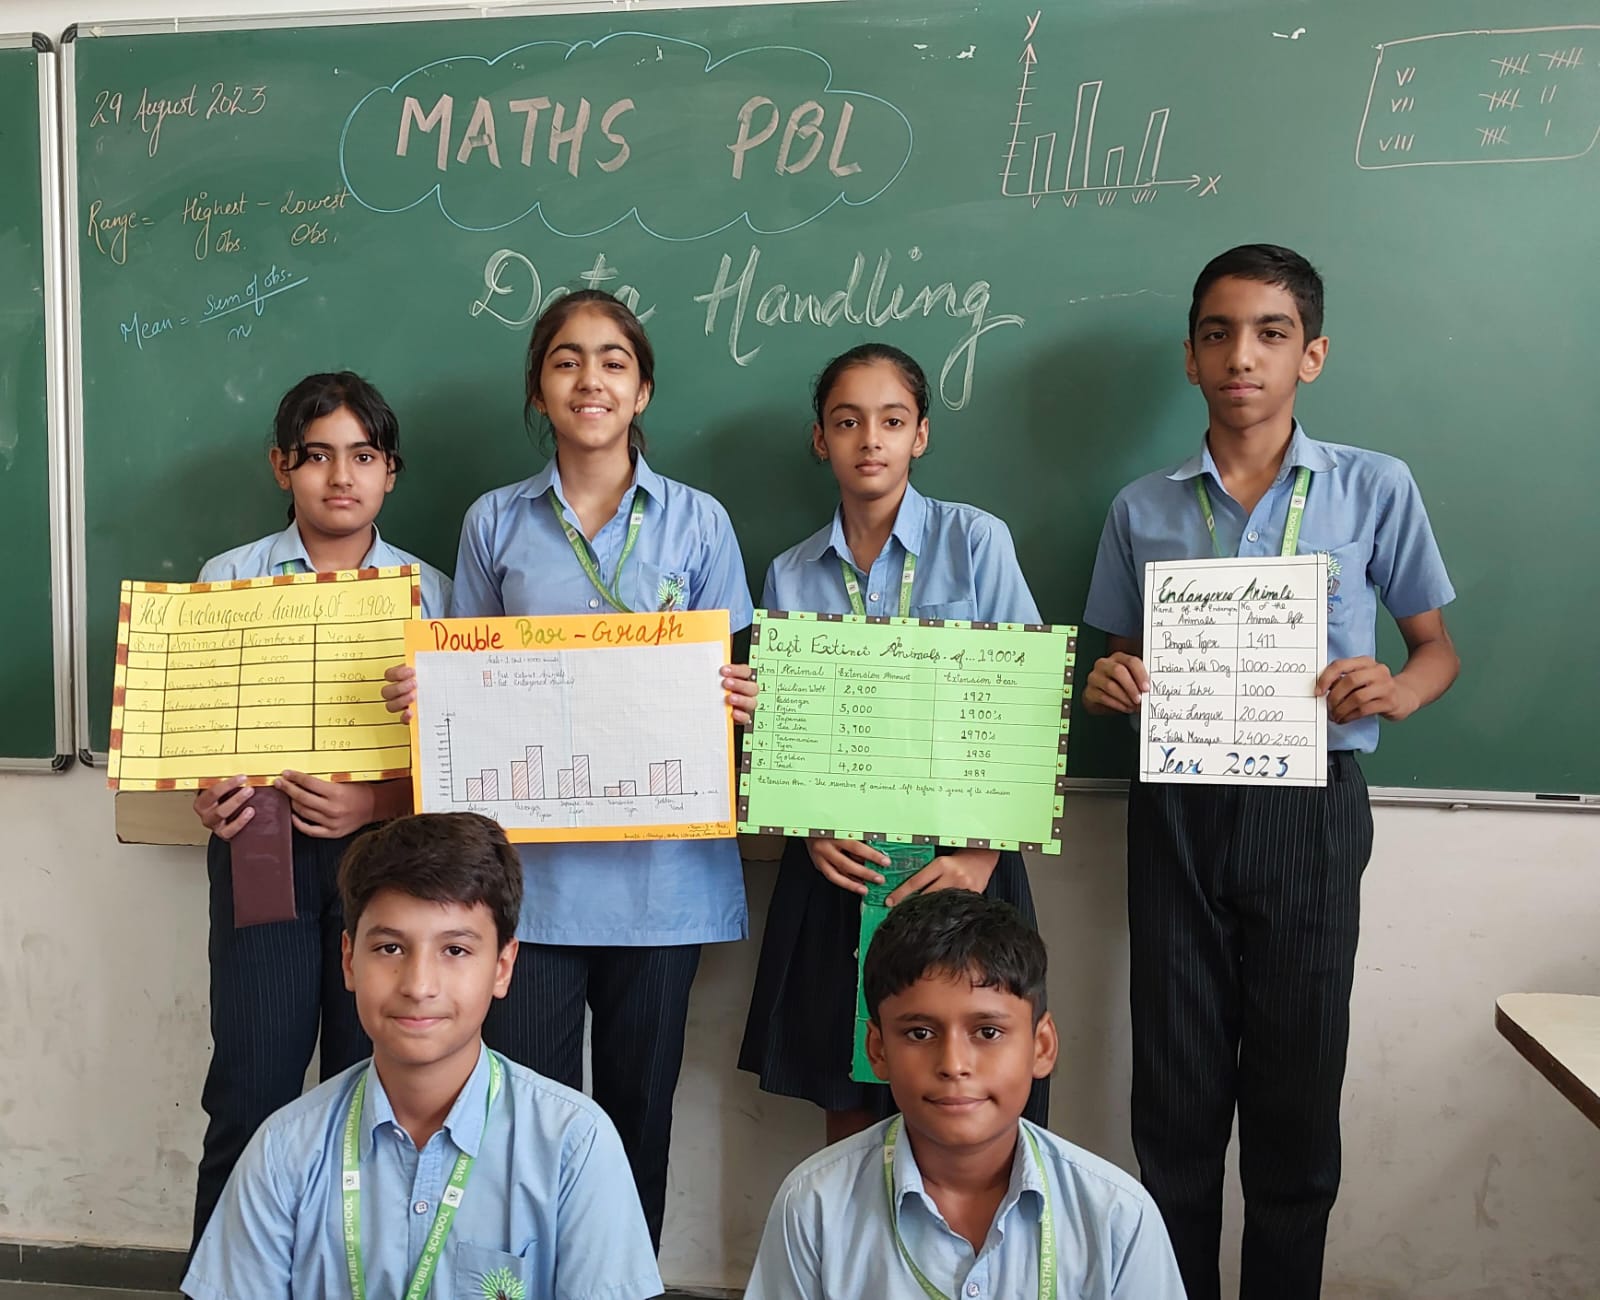 29 August 2023
MATHS PBL
Data Handling
Range = Highest Obs. - Lowest Obs.
Mean = Sum of obs. / n
Y
X
V VI VII VIII
VI
VII
VIII
Past Endangered Animals Of ... 1900's
S.no Animals Numbers Year
1
2 1900's
3 1970's
4 Tasmanian Tiger 2,000 1936
5 Golden Toad 4500 1989
Double Bar-Graph
Past Extinct Animals
Past Endangered Animals
Golden Toad
Past Extinct Animals of ... 1900's
S.no Animal Extension Amount Extension Year
1. Sicilian Wolf 2,900 1927
2. Passenger Pigion 5,000 1900's
3. Japanese Sea Lion 3,700 1970's
4. Tasmanian Tiger 1,300 1936
5. Golden Toad 4,200 1989
Extension Am. - The number of animal left before 3 years of its extension
Endangered Animals
Name of the Endangered Animals No. of the Animals left
Bengali Tiger 1,411
Indian Wild Dog 1000-2000
Nilgiri Tahr 1000
Nilgiri Langur 20,000
Lion-Tailed Macaque 2,400-2,500
Year 2023
PUBLIC SCHOOL
SWARNPRASTHA
PUBLIC SCHOOL
PUBLIC SCHOOL